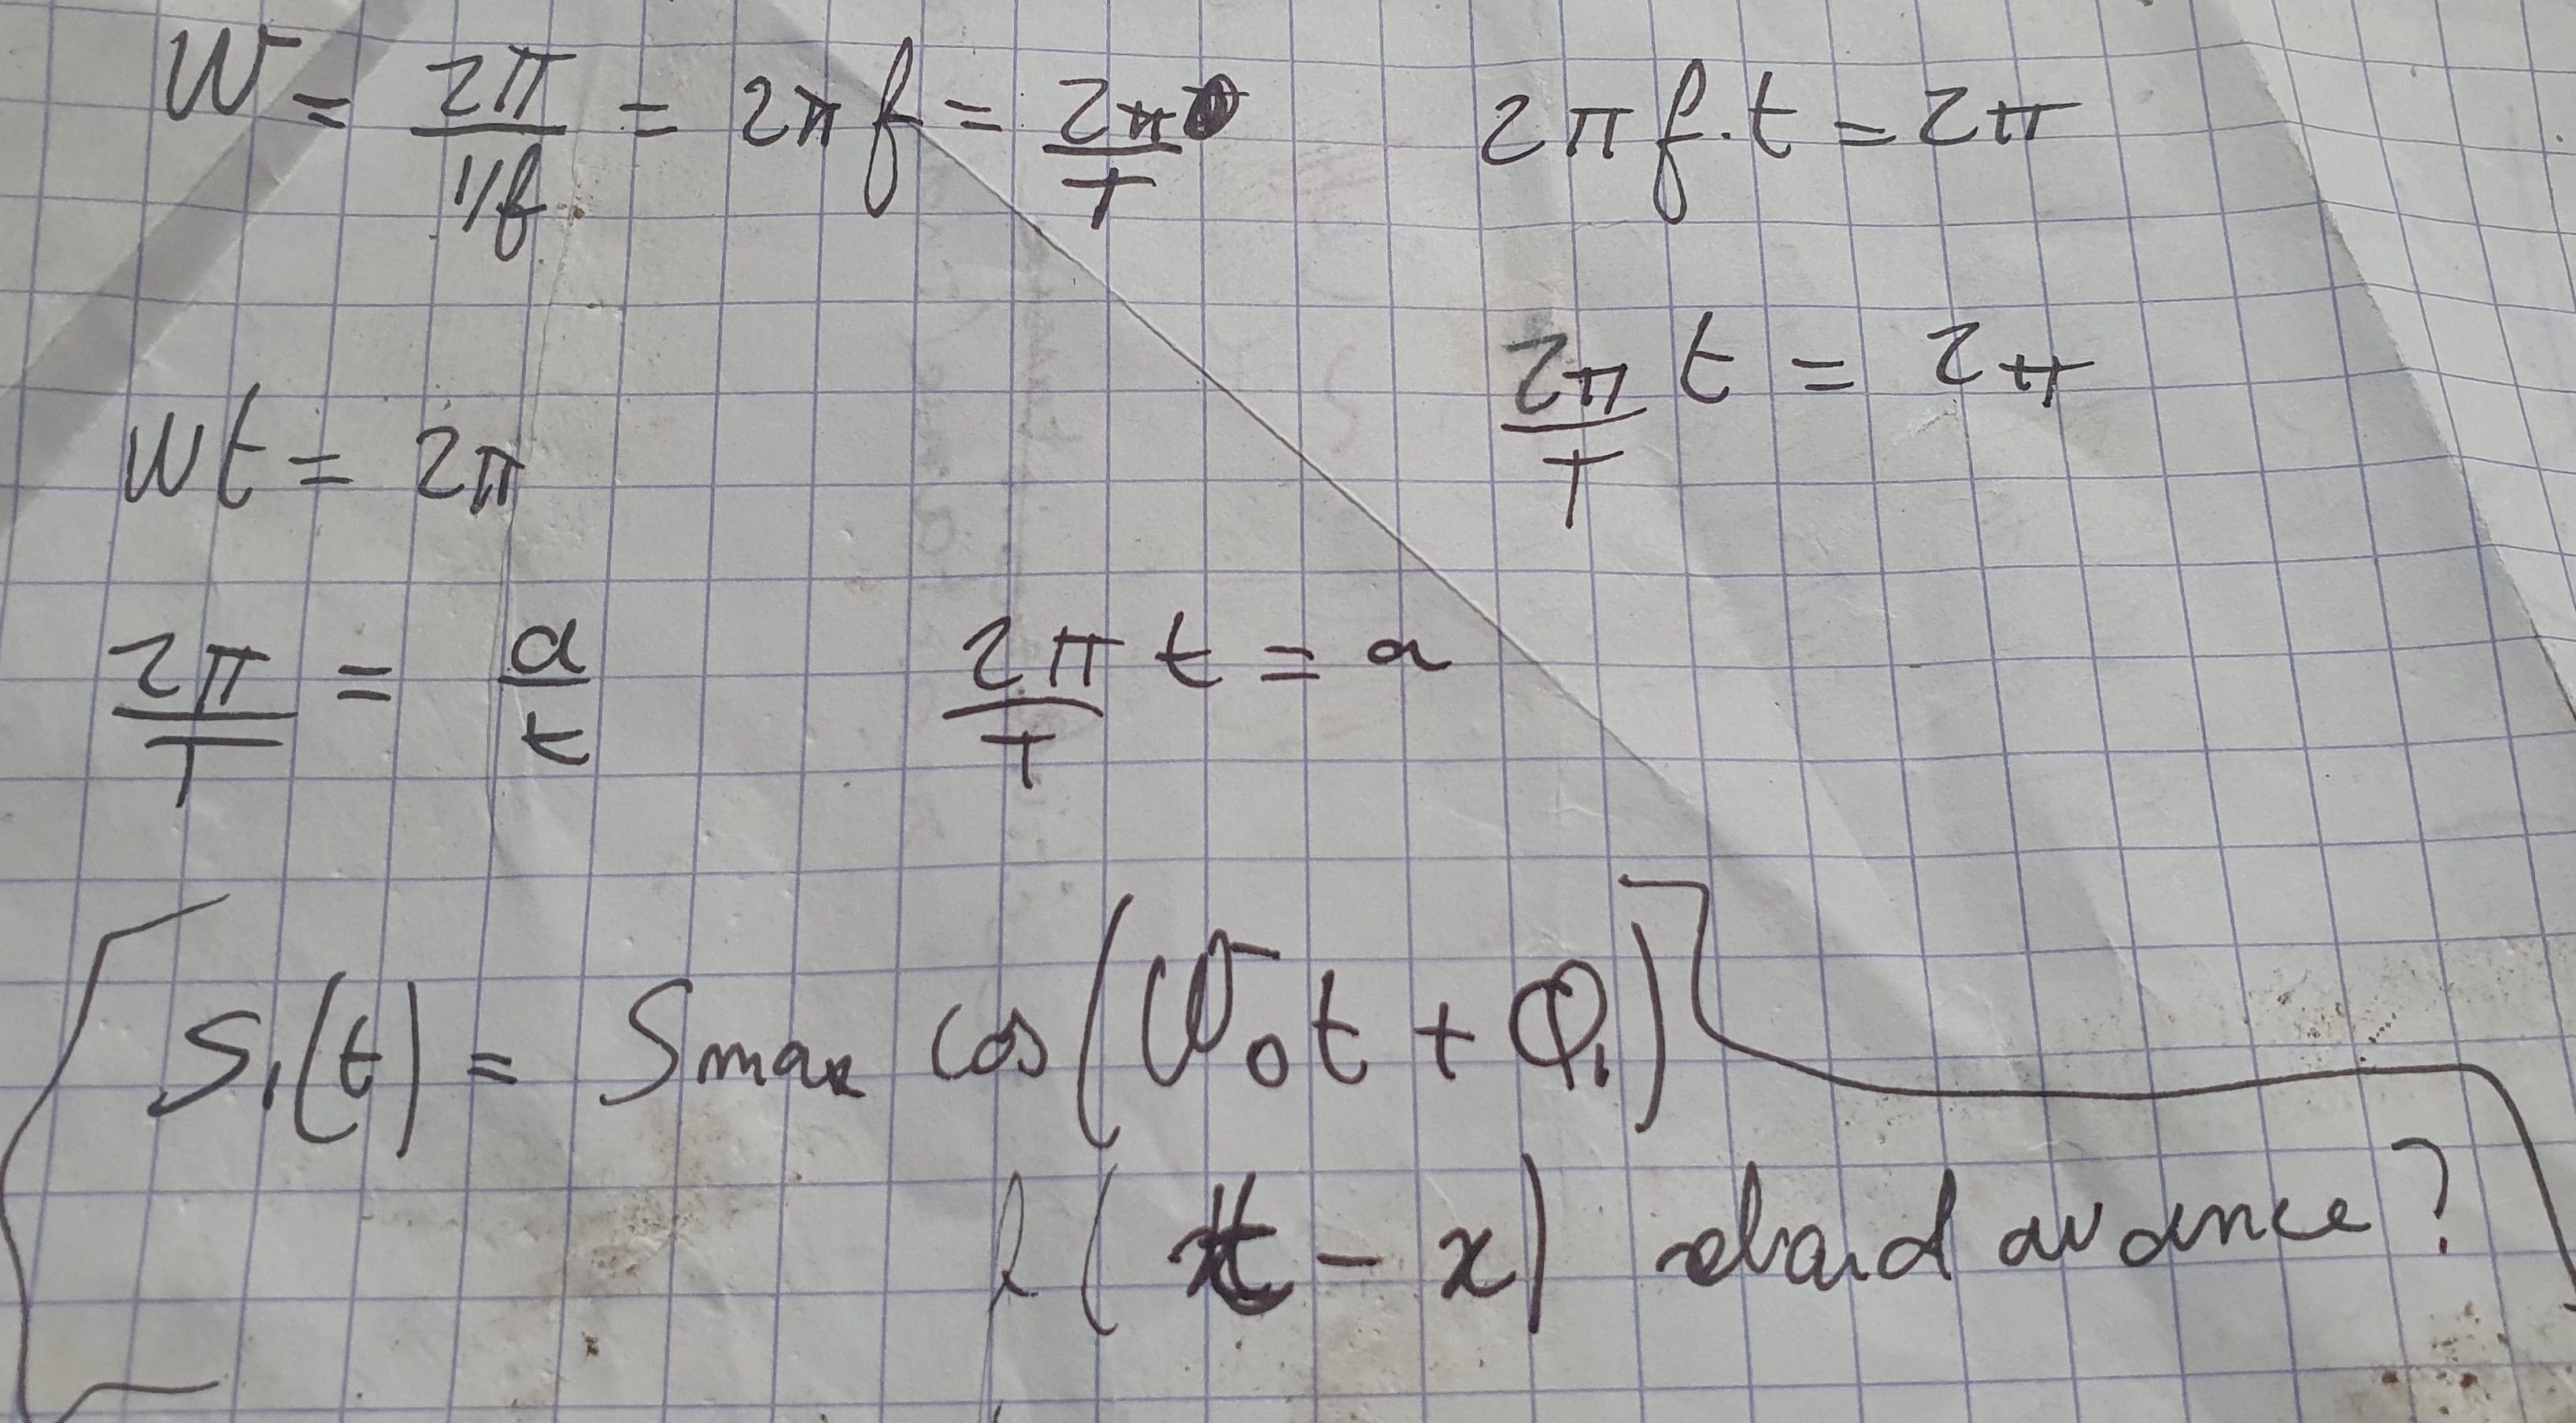 W = 2π / 1/f = 2πf = 2π / T
2πf.t = 2π
2π/T t = 2π
wt = 2π
2π/T = a/t
2π/T t = a
S₁(t) = Smax cos(W₀t + φ₁)
(t - x) retard avance ?